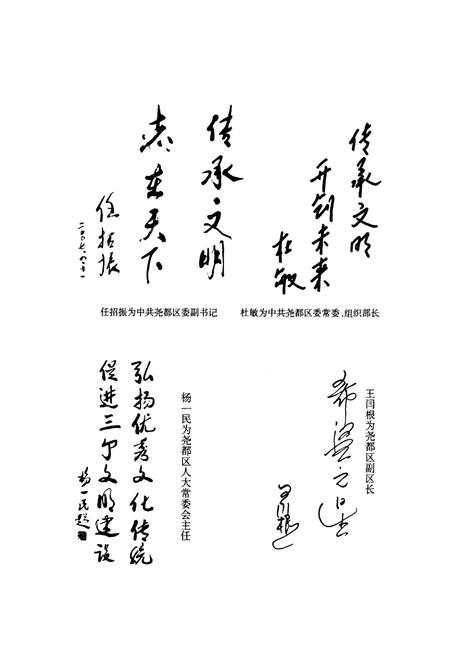 传承·文明
志在天下
任招振
任招振为中共尧都区委副书记
传承文明
开创未来
杜敏
杜敏为中共尧都区委常委、组织部长
弘扬优秀文化传统
促进三个文明建设
杨一民题
杨一民为尧都区人大常委会主任
希望之星
王闫根
王闫根为尧都区副区长